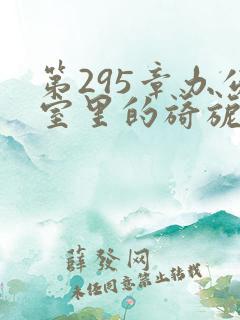 第295章办公
室里的旖旎
薛发网
未经同意禁止转载